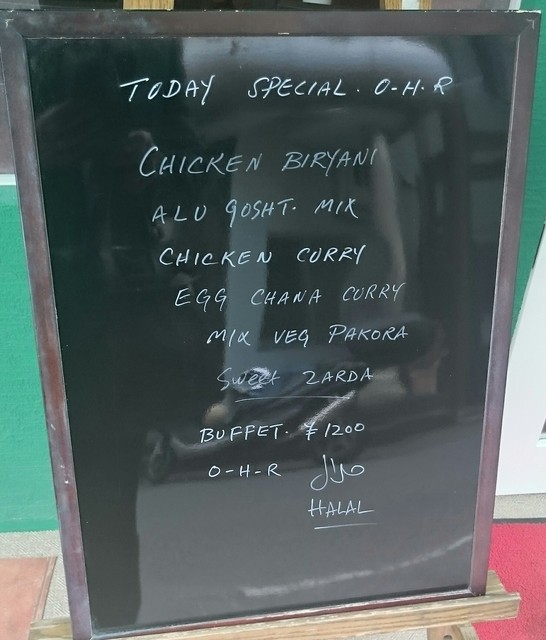 TODAY SPECIAL. O-H.R
CHICKEN BIRYANI
ALU GOSHT. MIX
CHICKEN CURRY
EGG CHANA CURRY
MIX VEG PAKORA
Sweet ZARDA
BUFFET. ¥1200
O-H-R حلال
HALAL